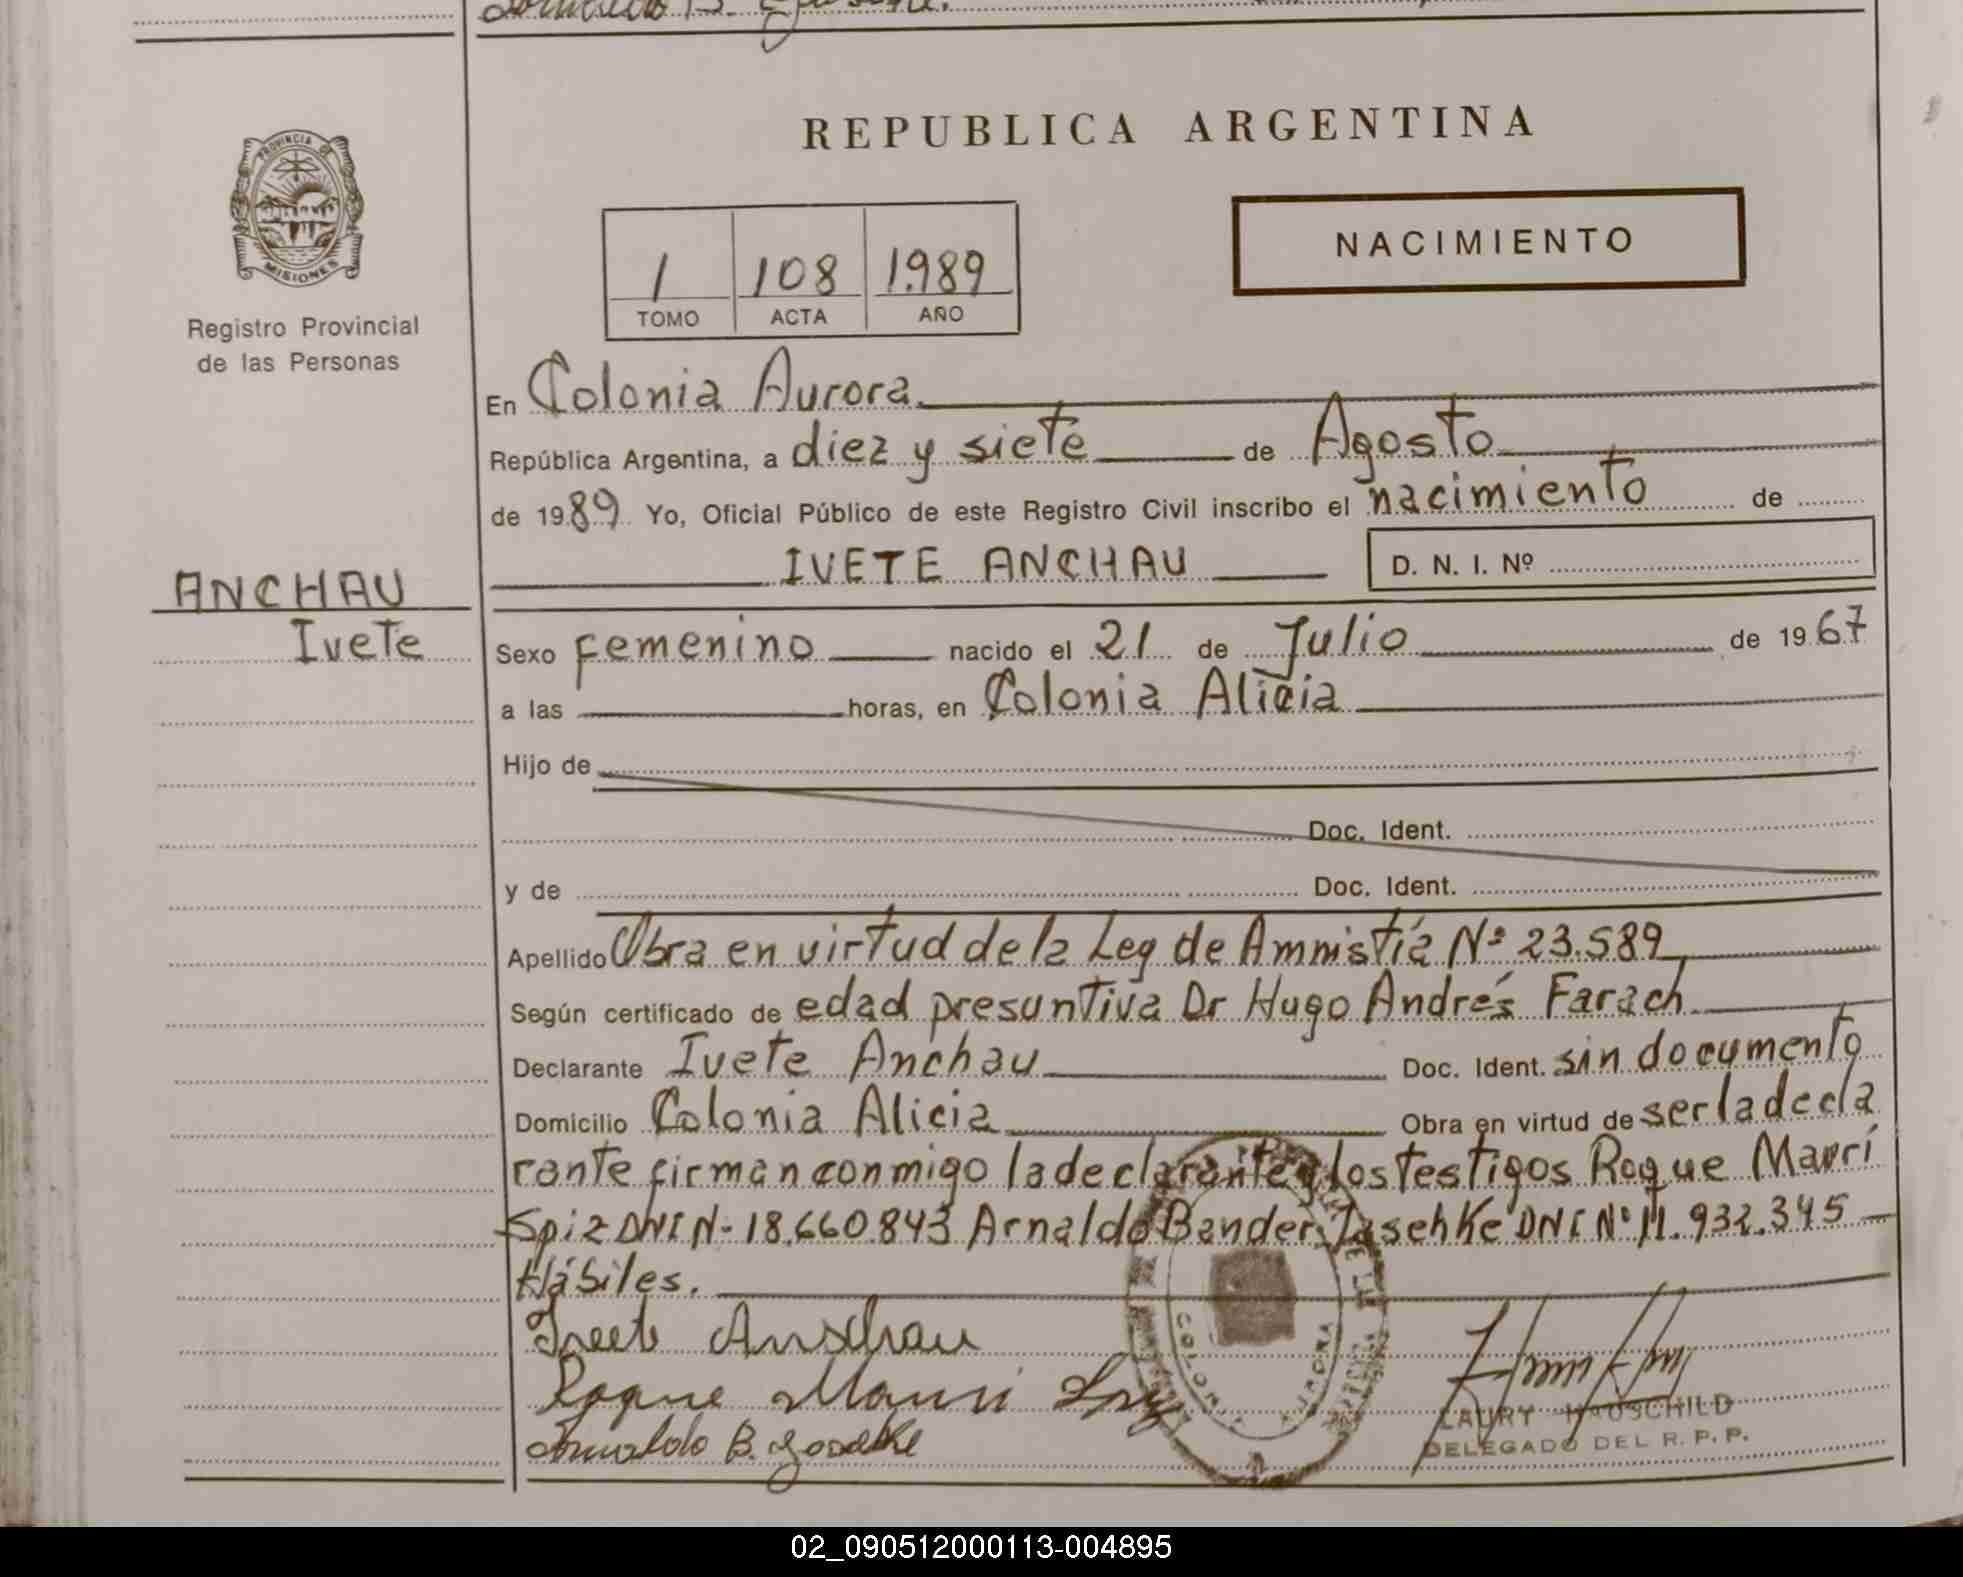 PROVINCIA DE
MISIONES
Registro Provincial
de las Personas
REPUBLICA ARGENTINA
1 108 1.989
TOMO ACTA AÑO
NACIMIENTO
En Colonia Aurora
República Argentina, a diez y siete de Agosto
de 1989 Yo, Oficial Público de este Registro Civil inscribo el nacimiento de
IVETE ANCHAU D. N. I. Nº
ANCHAU
Ivete
Sexo femenino nacido el 21 de Julio de 1967
a las horas, en Colonia Alicia
Hijo de
Doc. Ident.
y de Doc. Ident.
Apellido Obra en virtud de la Ley de Amnistía Nº 23.589
Según certificado de edad presuntiva Dr Hugo Andrés Farach
Declarante Ivete Anchau Doc. Ident. sin documento
Domicilio Colonia Alicia Obra en virtud de ser la decla
rante firman conmigo la declarante y los testigos Roque Mavri
Spiz DNI N- 18.660.843 Arnaldo Bander DNI Nº 11.932.345
Hábiles.
Ivete Anschau
Roque Mauri
Arnaldo B.
COLONIA AURORA
LAURY HAUSCHILD
DELEGADO DEL R. P. P.
02_090512000113-004895